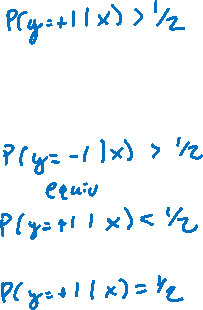 P(y=+1|x) > 1/2
P(y=-1|x) > 1/2
equiv
P(y=+1|x) < 1/2
P(y=+1|x) = 1/2